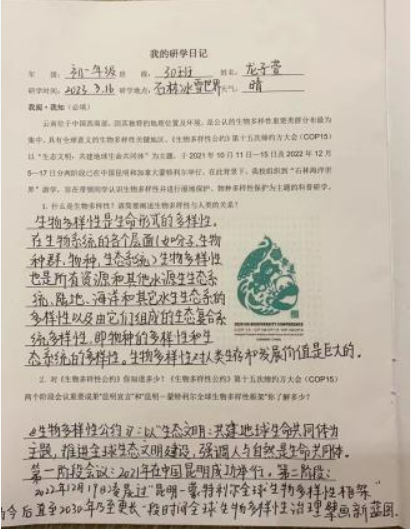 我的研学日记
年 级：初一年级 班 级：30班 姓名：龙子萱
研学时间：2023.3.16 研学地点：石林冰雪世界 天气：晴
我阅·我知（必填）
云南位于中国西南部，因其独特的地理位置及环境，是公认的生物多样性重要类群分布最为
集中、具有全球意义的生物多样性关键地区。《生物多样性公约》第十五次缔约方大会（COP15）
以“生态文明：共建地球生命共同体”为主题，于 2021 年 10 月 11 日—15 日及 2022 年 12 月
5—17 日分两阶段已在中国昆明和加拿大蒙特利尔举行。在此背景下，我校组织到“石林海洋世
界”游学，旨在带领同学认识生物多样性并进行湿地保护、物种多样性保护为主题的科普研学。
1. 什么是生物多样性？请简要阐述生物多样性与人类的关系？
生物多样性是生命形式的多样性。
在生物系统的各个层面（如分子、生物
种群、物种、生态系统）生物多样性
也是所有资源和其他水源生态系
统、陆地、海洋和其它水生生态系的
多样性以及由它们组成的生态复合系
统多样性，即物种的多样性和生
态系统的多样性。生物多样性对人类生存和发展价值是巨大的。
2020 UN BIODIVERSITY CONFERENCE
2. 对《生物多样性公约》你知道多少？《生物多样性公约》第十五次缔约方大会（COP15）
两个阶段会议重要成果“昆明宣言”和“昆明－蒙特利尔全球生物多样性框架”你了解多少？
《生物多样性公约》：以“生态文明：共建地球生命共同体为
主题，推进全球生态文明建设，强调人与自然是生命共同体。
第一阶段会议：2021年在中国昆明成功举行。第二阶段：
2022年12月19日凌晨通过“昆明-蒙特利尔全球生物多样性框架”
为今后直至2030年乃至更长一段时间全球生物多样性治理擘画新蓝图。